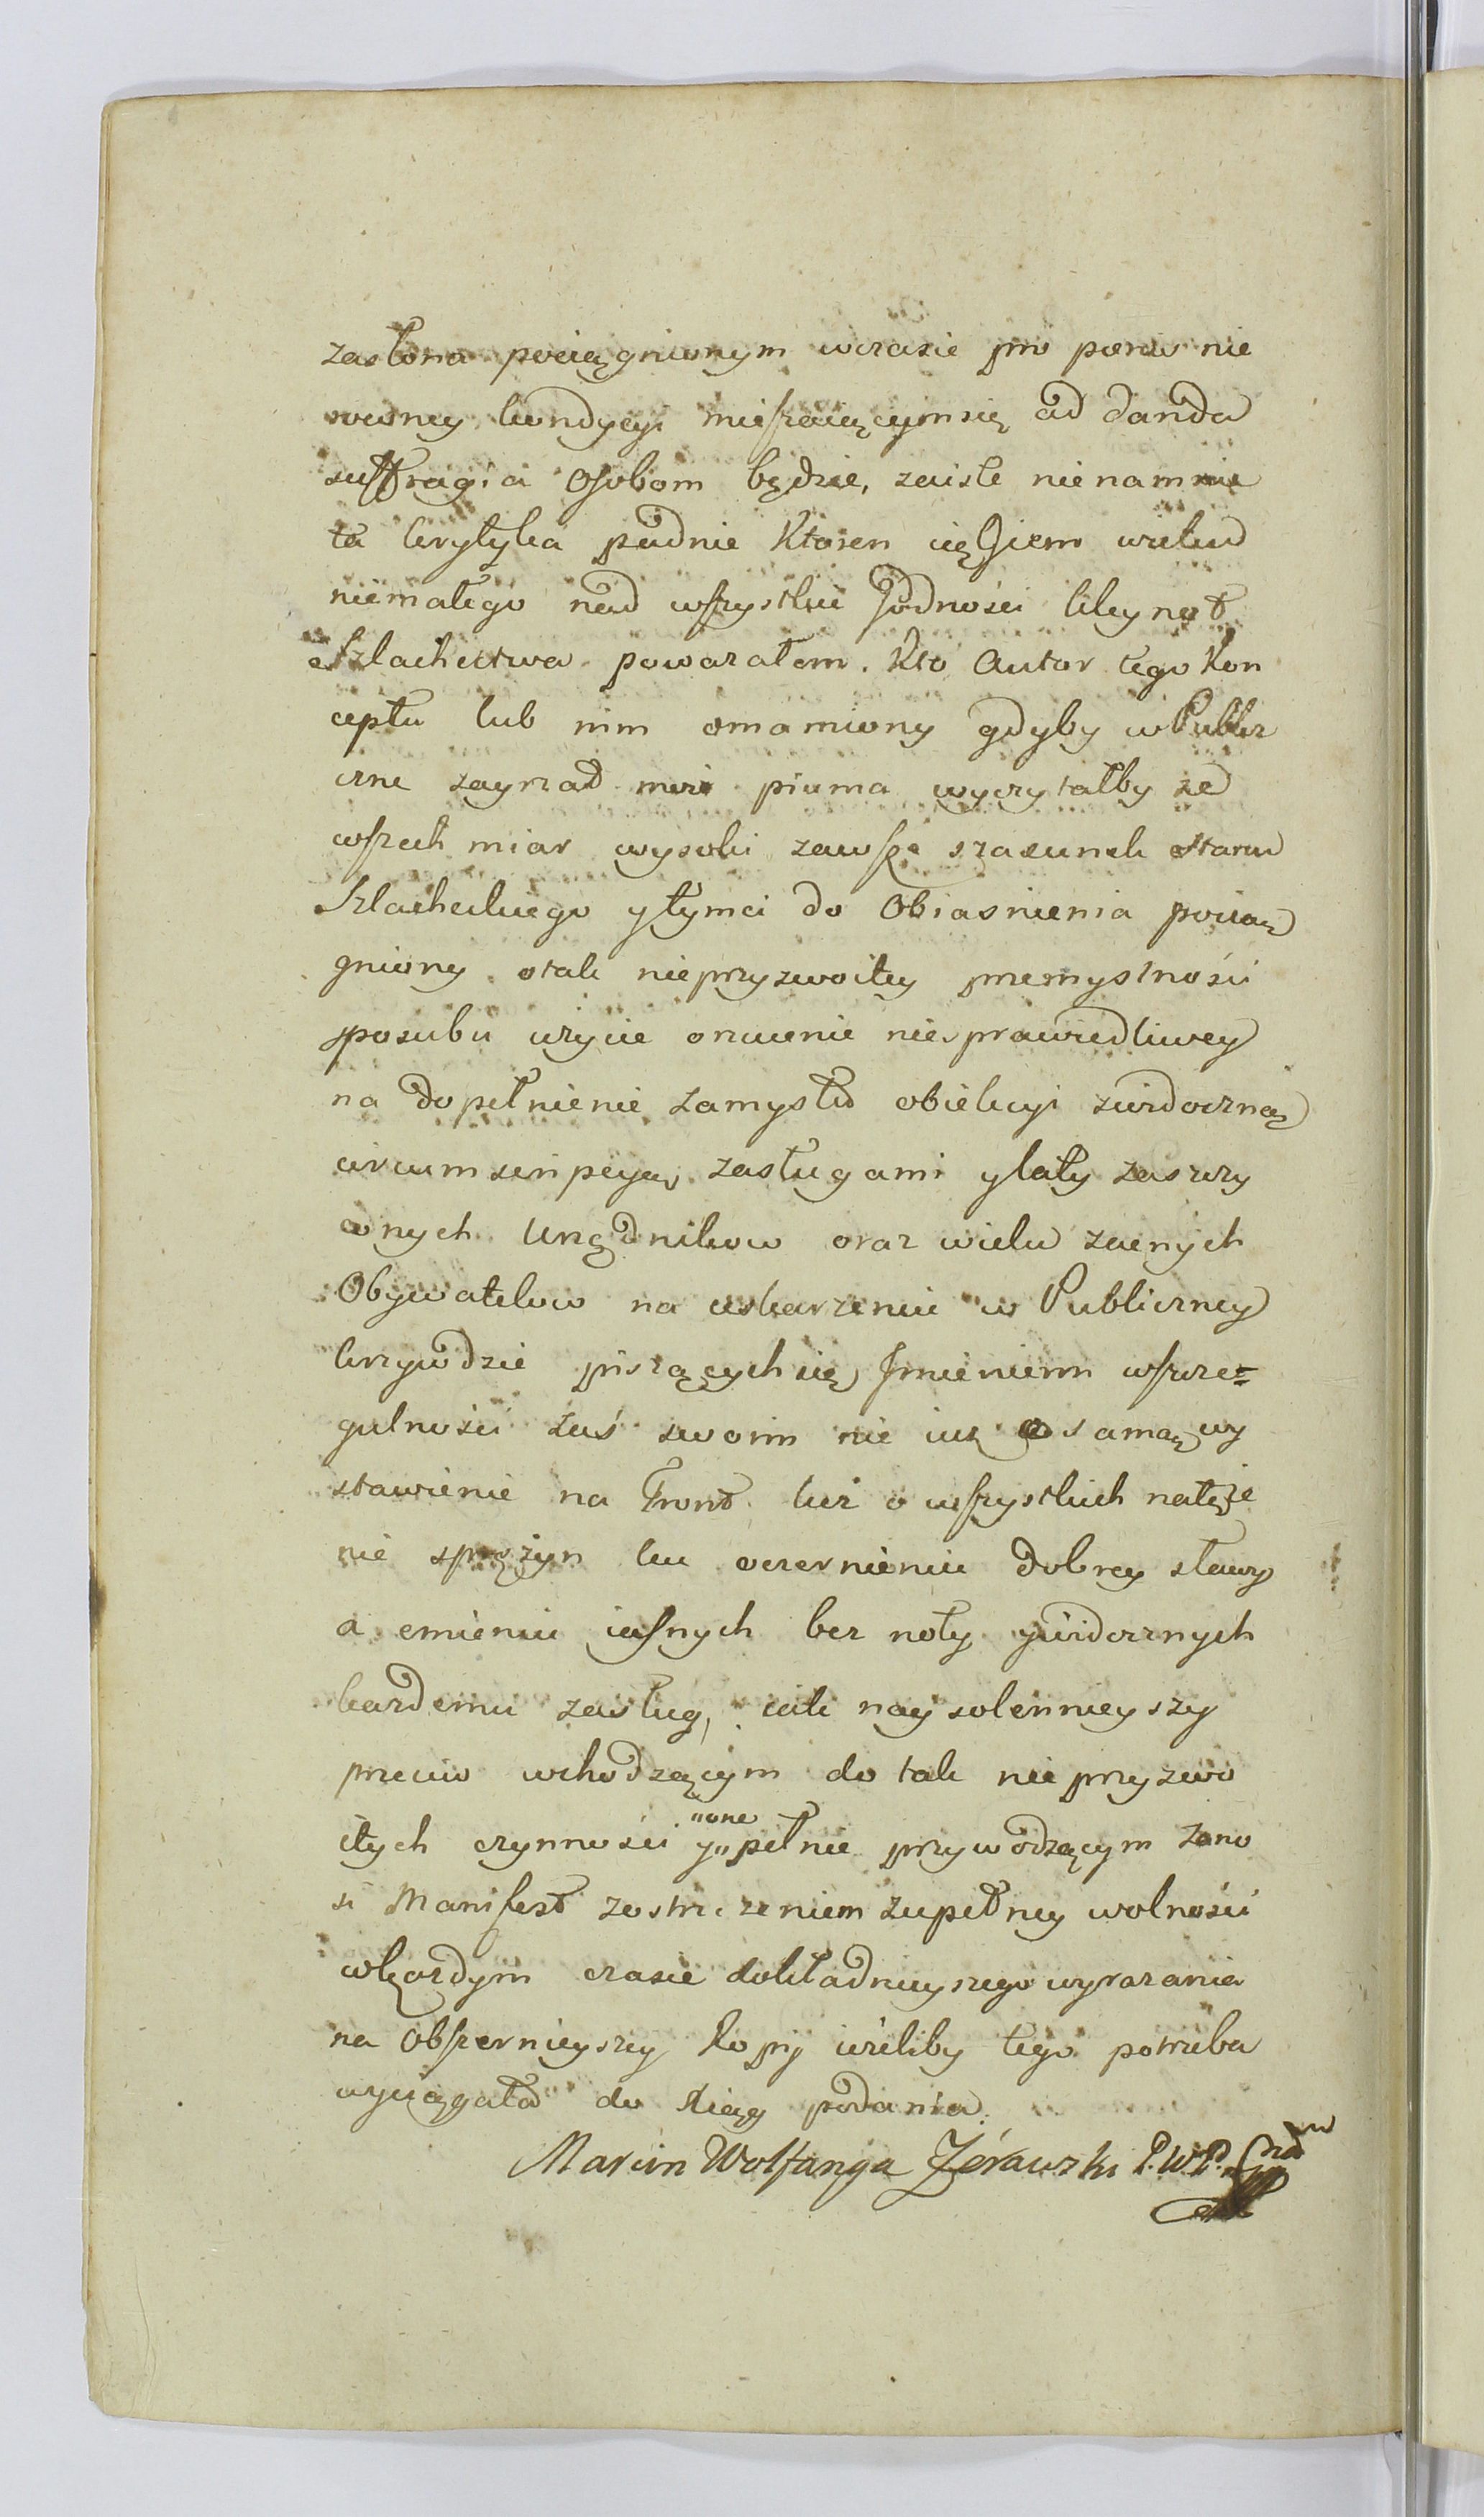 zasłona pociągnionym wczasie pro porownie
wczney kondycyi mieszaiącym się ad danda
suffragia Osobom będzie, zaiste nie namnie
ta krytyka padnie Ktoren ciągiem wieku
niemałego nad wszystkie Godności kleynot
Szlachectwa poważałem. Kto Autor tego Kon
ceptu lub nim omamiony gdyby w Public
zne zayrzał piuma wyczytałby ze
wszech miar wysoki zawsze szacunek stanu
Szlacheckiego y tymci do Obiasnienia pociąg
gniony o tak nieprzyzwoitey przemyslności
sposobu uzycie orzucenie niesprawiedliwey
na dopełnienie zamysłu obiekcyi zwidoczną
circumscripcyą zasługami y laty zaszczy
conych Urzędnikow oraz wielu zacnych
Obywatelow na uskarzeniu w Publiczney
krzywdzie piszących się Jmieniem wszcze=
gulności zaś swoim nie iuż o samą wy
stawienie na Front lecz o wszystkich natęże
nie sprężyn ku oczernieniu dobrey sławy
a cmieniu iasnych bez noty y widocznych
kazdemu zasług, iak nay solennieyszy
przeciw wchodzącym do tak nieprzyzwo
itych czynności y one pełnie przywodzącym zano
si Manifest zostrzezeniem zupełney wolności
wkazdym czasie dokładnieyszego wyrazania
na Obszernieyszey Kopij ieżeliby tego potrzeba
wyciągała do Xiąg podania.
Marcin Wolfanga Zórawski P.W.P.